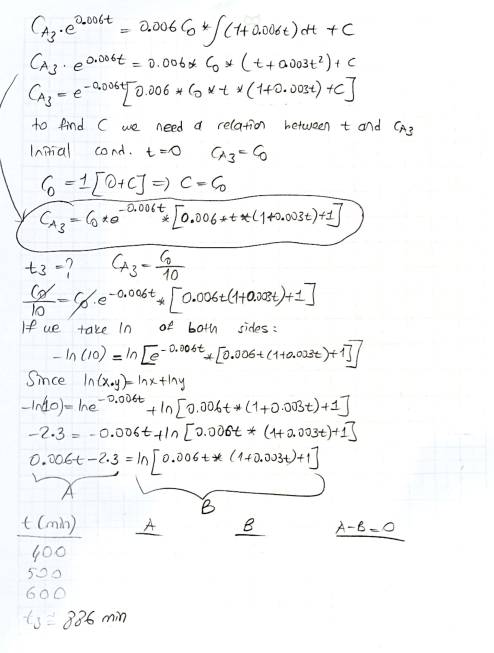 C_A3 · e^0.006t = 0.006 C_0 * ∫(1+0.006t) dt + C
C_A3 · e^0.006t = 0.006 * C_0 * (t + 0.003t²) + C
C_A3 = e^-0.006t [0.006 * C_0 * t * (1+0.003t) + C]
to find C we need a relation between t and C_A3
Initial cond. t=0 C_A3 = C_0
C_0 = 1 [0+C] => C = C_0
C_A3 = C_0 * e^-0.006t * [0.006 * t * (1+0.003t)+1]
t3 = ? C_A3 = C_0/10
C_0/10 = C_0 · e^-0.006t * [0.006t(1+0.003t)+1]
If we take ln of both sides:
-ln(10) = ln[e^-0.006t * [0.006t(1+0.003t)+1]]
Since ln(x.y) = lnx + lny
-ln(10) = lne^-0.006t + ln[0.006t * (1+0.003t)+1]
-2.3 = -0.006t + ln[0.006t * (1+0.003t)+1]
0.006t - 2.3 = ln[0.006t * (1+0.003t)+1]
A B
t (min) A B A-B=0
400
500
600
t3 ≅ 886 min